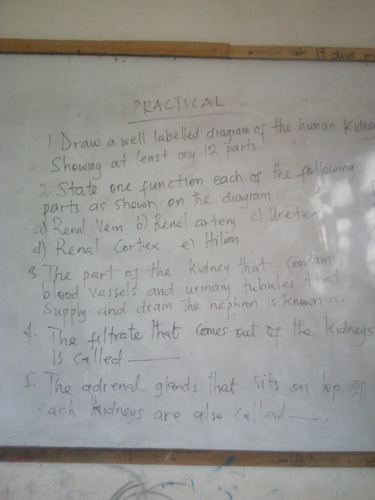 PRACTICAL
1. Draw a well labelled diagram of the human kidney
Showing at least any 12 parts.
2. State one function each of the following
parts as shown on the diagram.
a) Renal Vein b) Renal artery c) Ureter
d) Renal Cortex e) Hilum
3. The part of the kidney that contain
blood vessels and urinary tubules that
supply and drain the nephron is known as
4. The filtrate that comes out of the kidneys
is called
5. The adrenal glands that sits on top of
each kidneys are also called